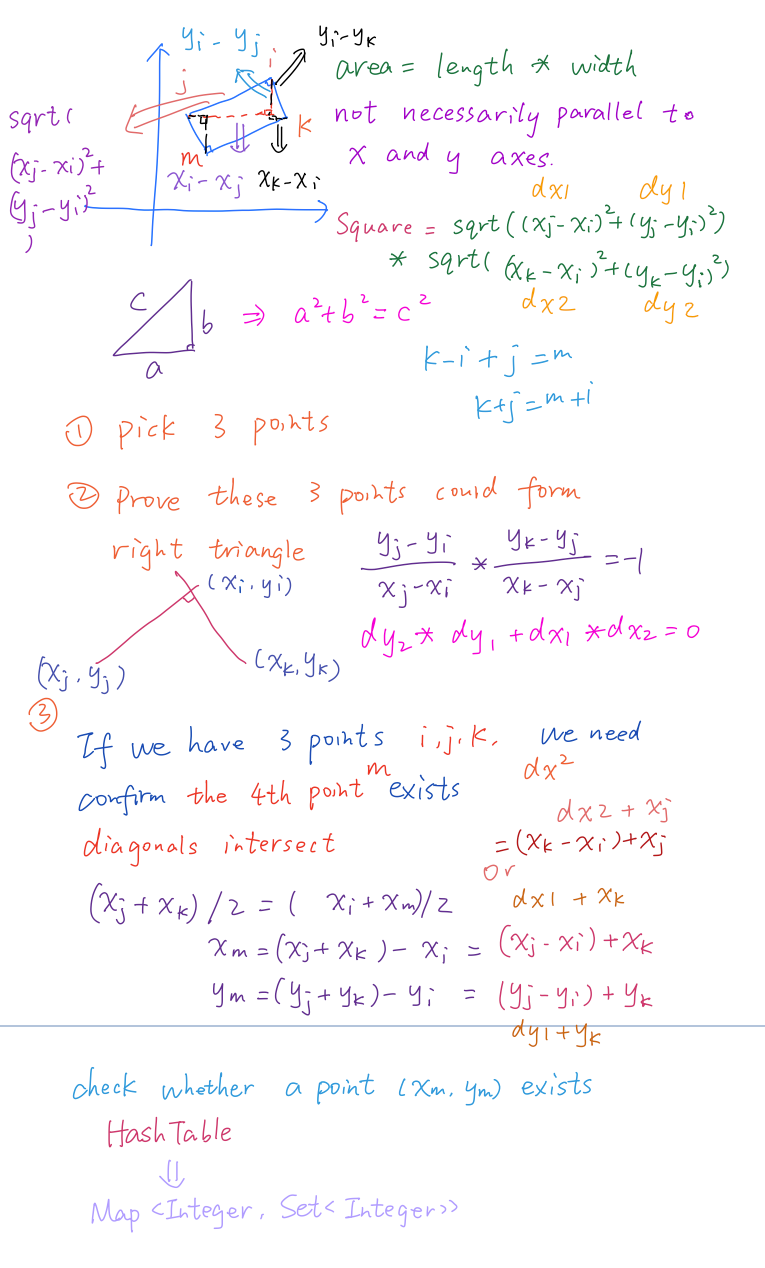 yi - yj
yi-yk
i
area = length * width
j
sqrt(
not necessarily parallel to
k
m
x and y axes.
(xj-xi)²+
xi-xj
xk-xi
(yj-yi)²
)
dx1 dy1
Square = sqrt((xj-xi)²+(yj-yi)²)
* sqrt((xk-xi)²+(yk-yi)²)
dx2 dy2
c
b
a
⇒ a²+b²=c²
k-i+j=m
k+j=m+i
① pick 3 points
② Prove these 3 points could form
right triangle
(yj-yi)/(xj-xi) * (yk-yj)/(xk-xj) = -1
(xi, yi)
dy2 * dy1 + dx1 * dx2 = 0
(xj, yj)
(xk, yk)
③
If we have 3 points i, j, k, we need
confirm the 4th point m exists
dx²
diagonals intersect
dx2 + xj
= (xk-xi)+xj
or
dx1 + xk
(xj+xk)/2 = (xi+xm)/2
xm = (xj+xk) - xi = (xj-xi)+xk
ym = (yj+yk) - yi = (yj-yi)+yk
dy1+yk
check whether a point (xm, ym) exists
HashTable
⇓
Map <Integer, Set<Integer>>